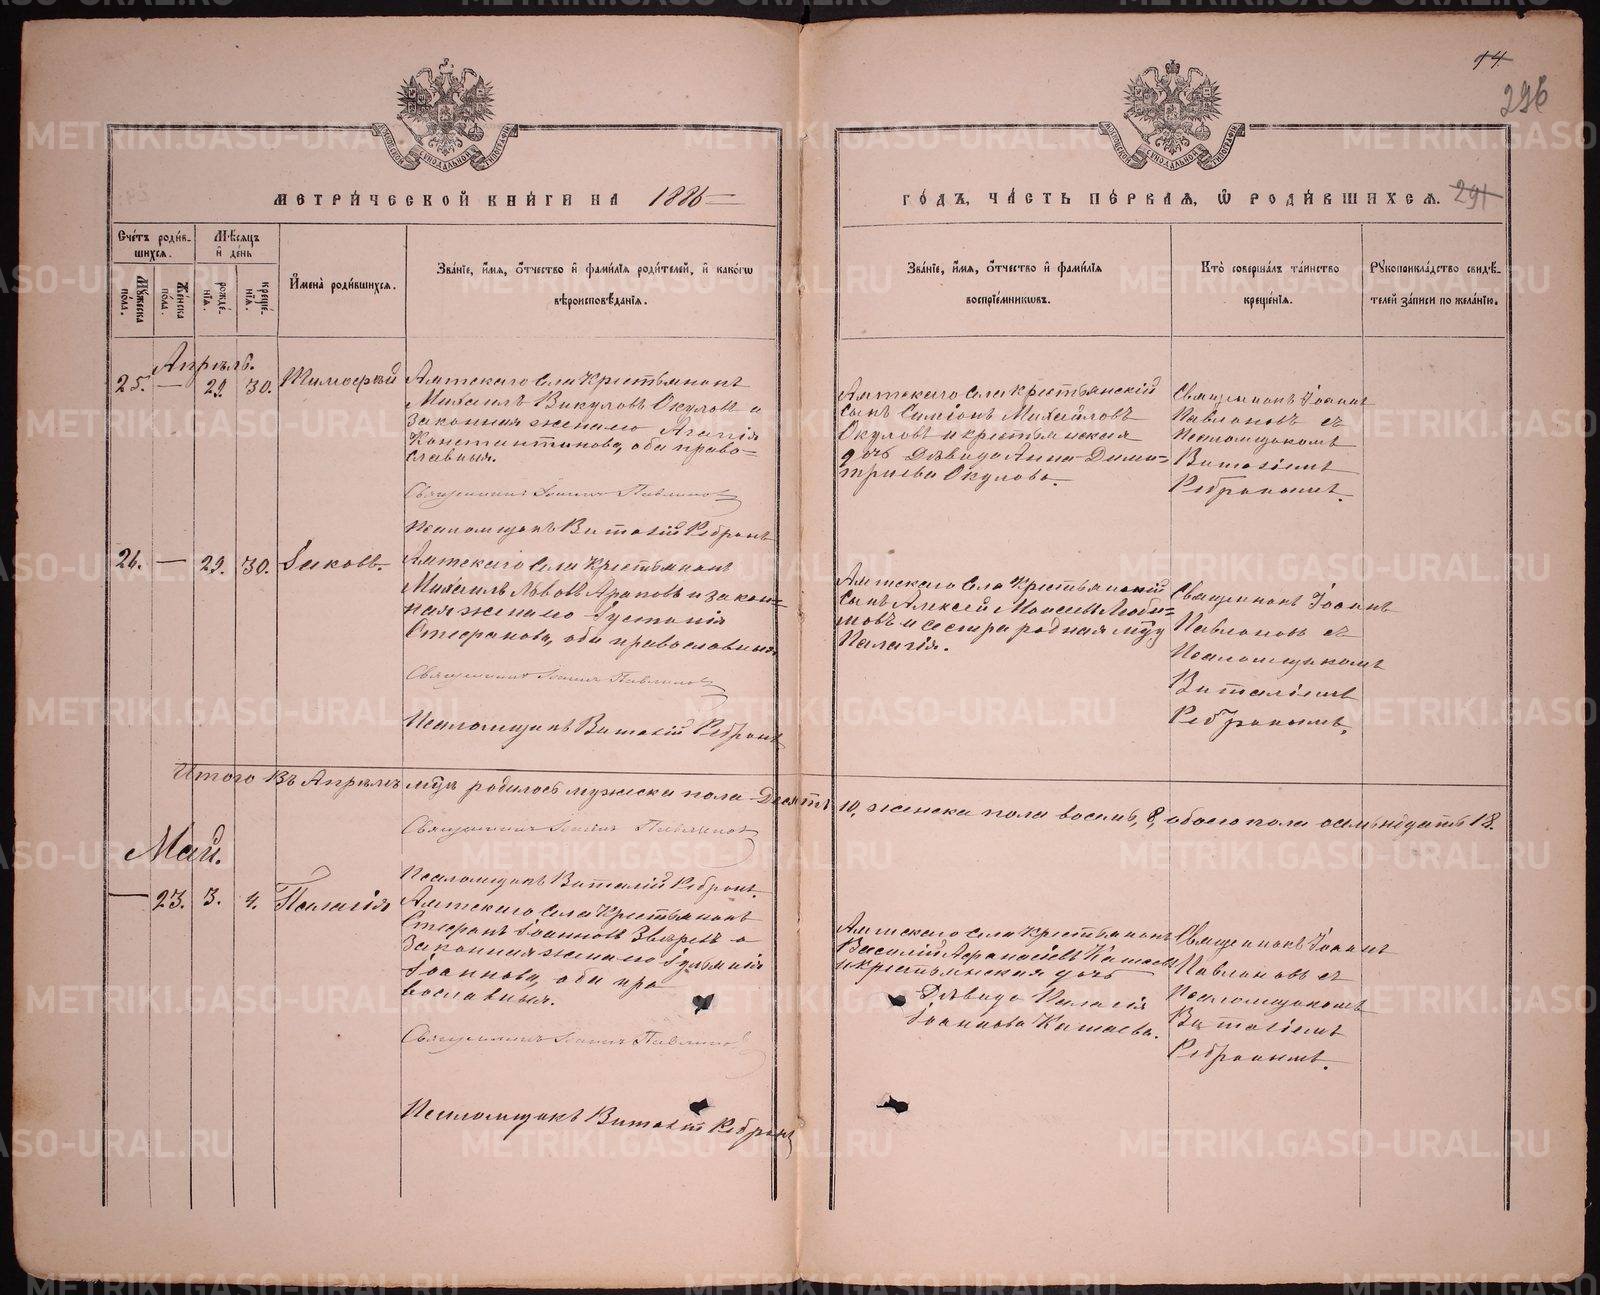 14
296
МЕТРИ́ЧЕСКОЙ КНИ́ГИ НА 1886 ГО́ДЪ, ЧА́СТЬ ПЕ́РВАЯ, Ѡ РОДИ́ВШИХСЯ. 291
Сче́тъ роди́в-
шихся.
Мꙋ́жеска по́ла.
Же́нска по́ла.
Мѣ́сяцъ
и҆ де́нь
рожде́-
нїя.
креще́-
нїя.
И҆мена̀ роди́вшихся.
Зва́нїе, и҆́мя, ѻ҆́тчество и҆ фамѝлїя роди́телей, и҆ како́гѡ
вѣроисповѣ́данїя.
Зва́нїе, и҆́мя, ѻ҆́тчество и҆ фами́лїя
воспрїе́мникѡвъ.
Кто̀ соверша́лъ та́инство
креще́нїя.
Рꙋкоприкла́дство свидѣ́-
телей за́писи по жела́нїю.
Апрѣль.
25. — 29. 30. Тимофей
Аятскаго села крестьянинъ
Михаилъ Викуловъ Окуловъ и
законная жена его Агапія
Константинова, оба право-
славныя.
Священникъ Іоаннъ Павлиновъ
Псаломщикъ Виталій Ребринъ
Аятскаго села крестьянскій
сынъ Симеонъ Михайловъ
Окуловъ и крестьянская
дочь Дѣвица Анна Дими-
тріева Окулова.
Священникъ Іоаннъ
Павлиновъ съ
Псаломщикомъ
Виталіемъ
Ребринымъ.
26. — 29. 30. Іаковъ.
Аятскаго села крестьянинъ
Михаилъ Львовъ Араповъ и закон-
ная жена его Іустинія
Стефанова, оба православныя.
Священникъ Іоаннъ Павлиновъ
Псаломщикъ Виталій Ребринъ
Аятскаго села крестьянскій
сынъ Алексей Моисеевъ Люби-
мовъ и сестра родная ему
Палагія.
Священникъ Іоаннъ
Павлиновъ съ
Псаломщикомъ
Виталіемъ
Ребринымъ.
Итого въ Апрѣлѣ мцѣ родилось мужеска пола Десять 10, женска пола восемь, 8, обоего пола осмьнадцать 18.
Священникъ Іоаннъ Павлиновъ
Псаломщикъ Виталій Ребринъ.
Май.
— 23. 3. 4. Палагія
Аятскаго села крестьянинъ
Стефанъ Іоанновъ Звѣревъ и
законная жена его
Іоаннова, оба пра
вославныя.
Священникъ Іоаннъ Павлиновъ
Псаломщикъ Виталій Ребринъ
Аятскаго села крестьянинъ
Василій Афанасіевъ Катаевъ
и крестьянская дочь
Дѣвица Палагія
Іоаннова Катаева.
Священникъ Іоаннъ
Павлиновъ съ
Псаломщикомъ
Виталіемъ
Ребринымъ.
METRIKI.GASO-URAL.RU